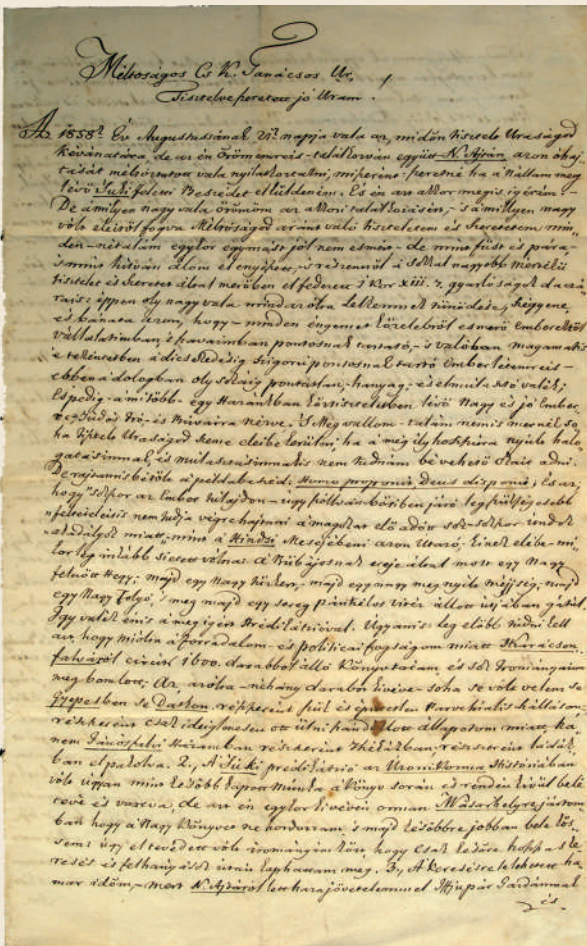 Méltoságos Cs K. Tanácsos Ur,
Tisztelve szeretett jó Uram.
Az 1858? Év Augustussának napja vala az, midőn tisztelt Uraságod
kévánatára, de az én örömemreis találkozván együtt N. Ajtán, azon óhaj-
tását méltoztatott vala nyilatkoztatni, miszerint szeretné ha a Nállam meg
lévő Suki feletti Beszédet elküldeném. És én azt akkor meg is igérém.
De ámilyen nagy vala örömöm az akkori találkozásért, s a millyen nagy
vólt eleitől fogva Méltóságod aránt való tiszteletem és szeretetem, min-
den netalám egykor egymást jól nem esmért de mint füst és pára
is mint hitván álom elenyészett, s részemről a sokkal nagyobb mértékü
tisztelet és szeretet által merőben elfedezett 1 Kor XIII. 7. gyarlóságok daczá-
rais: éppen oly nagy vala mind azolta lelkemnek tünődése, szégyene,
és bánata azon, hogy minden engemet közelebről esmerő Emberektől
vállalatimban, s szavaimban pontosnak tartató, s valóban magamatis
e tekéntetben a dicsekedésig szigorú pontosnak tartó Ember létemreis
ebben a dologban oly sokáig pontatlan, hanyag, és elmulasztó valék;
Espedig a mi több egy Hazánkban köztiszteletben lévő Nagy és jó Ember
s tudós Iró és Búvárra nézve. 'S Megvallom talám nem is mernék so-
ha tisztelt Uraságod szeme eleibe kerülni, ha a még ily hosszura nyúlt halo-
gatásimnak, és múlasztásimnakis nem tudnám bévehető okait adni.
De rajtamis bétölt a példabeszéd: Homo proponit, Deus disponit; És az,
hogy sokszor az Ember tulajdon úgy szóllván bőriben járó legszükségesebb
felteteleitis nem tudja végrehajtani a magokat elő adott sok-sokszor
akadályok miatt; mint a Hindsi Mesejébeni azon Utazó. kinek elébe mi-
kor leg inkább sietett vólna: a Bűbájosnak ereje által most egy Nagy
felnőtt Hegy; majd egy Nagy, majd egy nagy megnyilt mélység, majd
egy Nagy folyó 's meg majd egy sereg pánczélos vitéz állott útjában gátúl.
Így valék énis a megigért Prédikátzióval. Ugyanis: leg előbb tudni kell
azt hogy midőn a forradalom és politicai fogságom miatt Karácson-
falváról circiter 1600. darabból álló Könyvtáram, és sok Irományaim
meg bomlott; Az, azolta néhány darabot kivéve soha se vólt velem se
Szepesben se Datkon, részszerént szük és épületlen Parochialis szállásom,
részszerént csak ideiglenesen ott ülni szándékolt állapotom miatt, ha-
nem Jánosfalvi Házamban részszerént Thékákban, részszerént ládák-
ban elpakolva. 2., A Suki prédikátzió az Uzoni Kozma Históriában
vólt ugyan mint később kapott Munka a könyv során és rendén kivül belé
téve és varrva, de azt én egykor kivévén onnan M Vásárhelyre jártom-
ban hogy a Nagy Könyvet ne hordozzam, 's majd későbbre jobban bele kös-
sem: úgy eltévedett vólt irományim közt, hogy csak késöre hoszszas ke-
resés és felhányások után kaphattam meg. 3., A keresésre se lehetett ha-
mar időm, mert N. Ajtáról lett haza jövetelemmel Ifjupár Gazdámnál
és